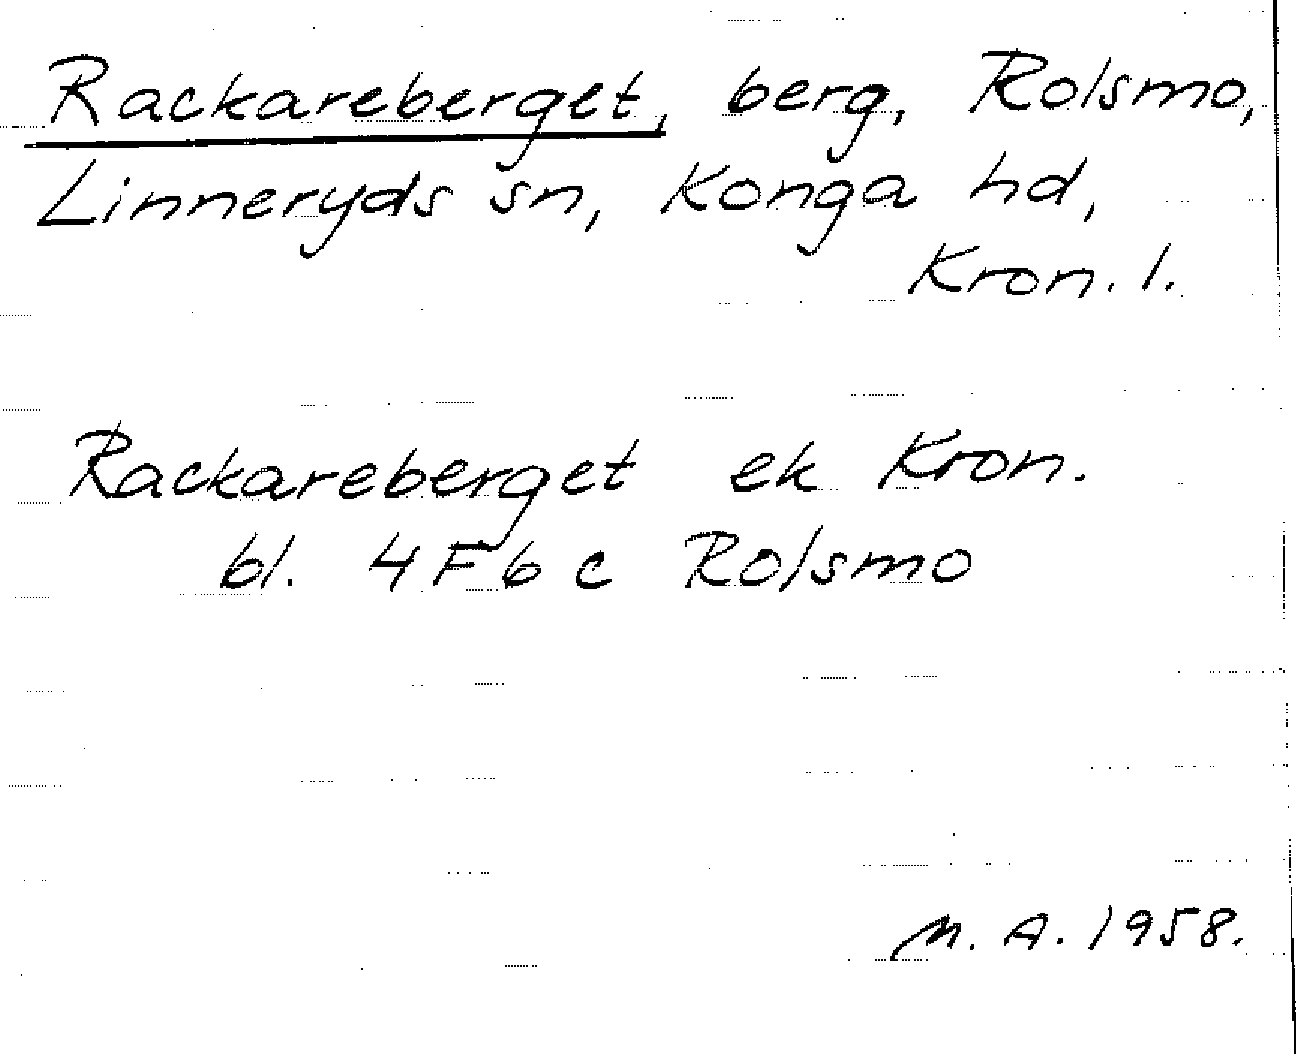 Rackareberget, berg, Rolsmo,
Linneryds sn, Konga hd,
Kron. l.
Rackareberget ek Kron.
bl. 4F6c Rolsmo
M. A. 1958.